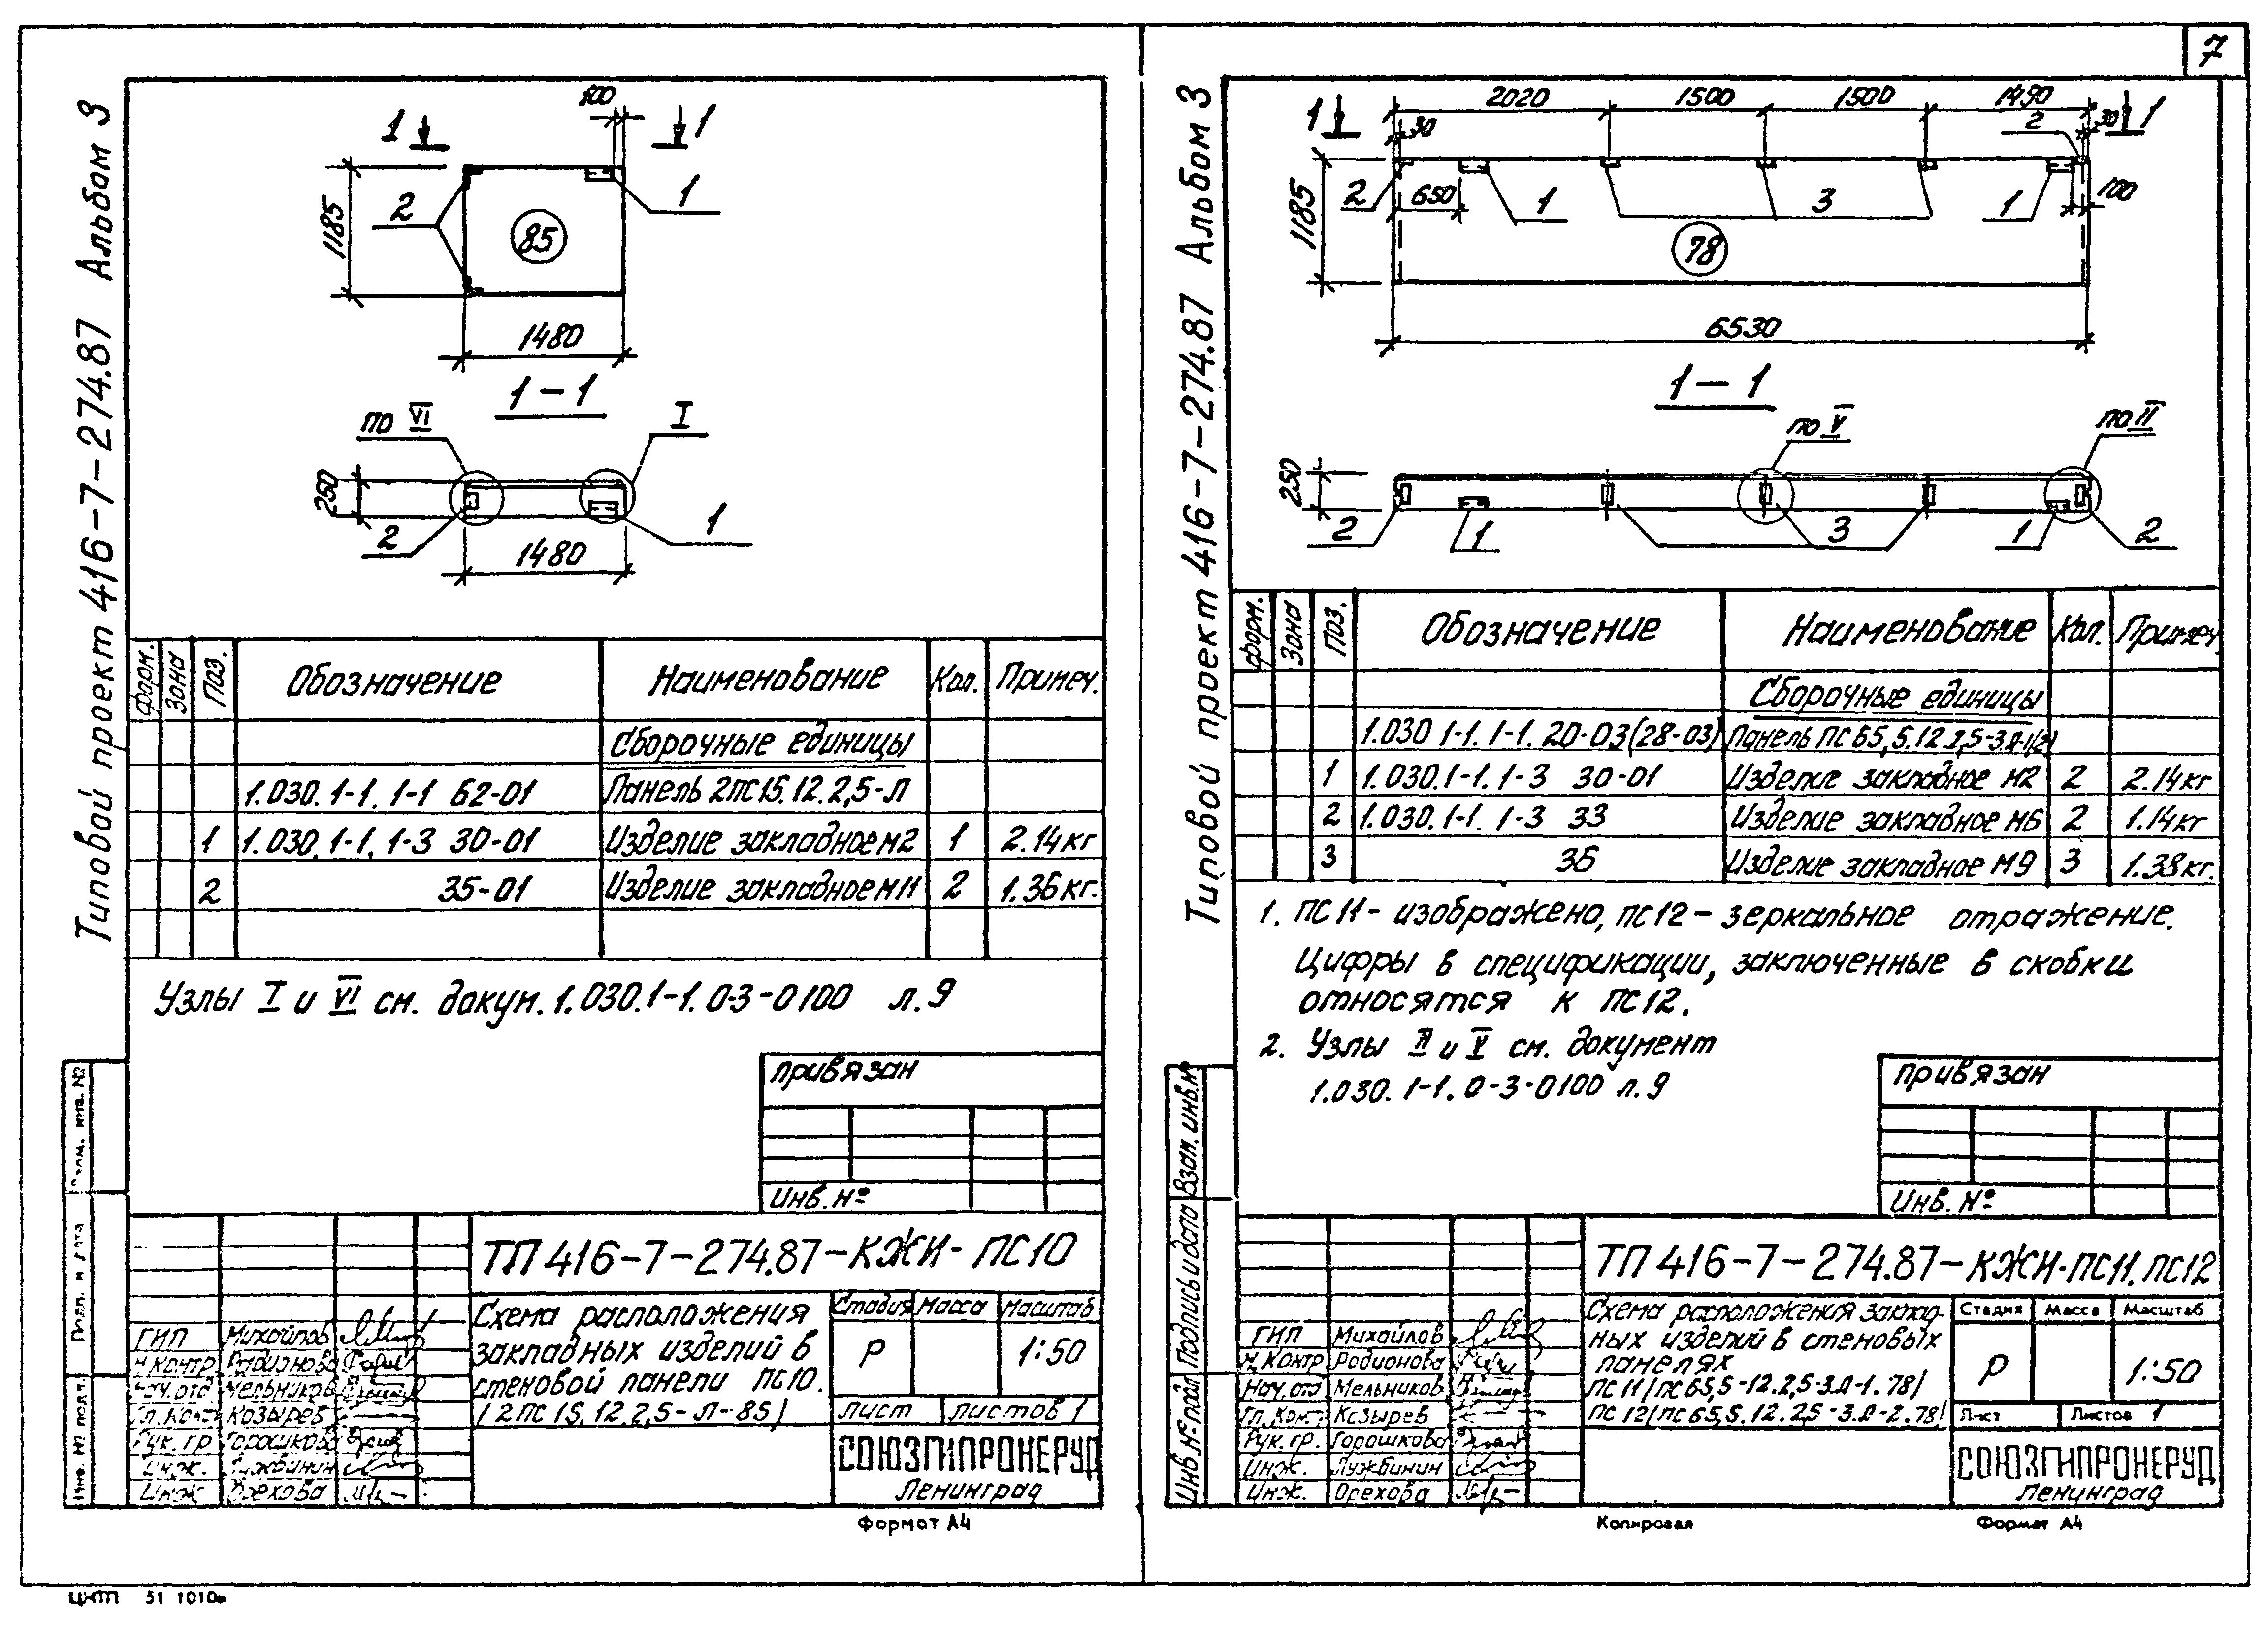 7
Типовой проект 416-7-274.87 Альбом 3
100
1
1
1185
2
1
85
1480
1-1
по VI
I
250
2
1
1480
Форм.
Зона
Поз.
Обозначение
Наименование
Кол.
Примеч.
Сборочные единицы
1.030.1-1. 1-1 62-01 Панель 2ПС15.12.2,5-Л
1 1.030.1-1. 1-3 30-01 Изделие закладное М2 1 2.14кг
2 35-01 Изделие закладное М11 2 1.36кг.
Узлы I и VI см. докум. 1.030.1-1. 0-3-0100 л.9
Привязан
Инв. №
Взам. инв. №
Подп. и дата
Инв. № подл.
ТП 416-7-274.87-КЖИ-ПС10
Схема расположения
закладных изделий в
стеновой панели ПС10.
(2ПС15.12.2,5-Л-85)
Стадия Масса Масштаб
Р 1:50
Лист Листов 1
СОЮЗГИПРОНЕРУД
Ленинград
ГИП Михайлов
Н.контр Родионова
Нач.отд Мельников
Гл.конт Козырев
Рук. гр Горошкова
Инж. Лужбинин
Инж Орехова
Формат А4
ЦИТП 51 1010
Типовой проект 416-7-274.87 Альбом 3
2020 1500 1500 1490
1
30
2
30
1
1185
2
650
1
3
1
100
78
6530
1-1
по V
по II
250
2
1
3
1
2
Форм.
Зона
Поз.
Обозначение
Наименование
Кол.
Примеч.
Сборочные единицы
1.030 1-1. 1-1. 20-03(28-03) Панель ПС 65,5.12.2,5-3.Л-1(2)
1 1.030.1-1. 1-3 30-01 Изделие закладное М2 2 2.14кг
2 1.030.1-1. 1-3 33 Изделие закладное М6 2 1.14кг
3 35 Изделие закладное М9 3 1.38кг.
1. ПС11- изображено, ПС12- зеркальное отражение.
Цифры в спецификации, заключенные в скобки
относятся к ПС12.
2. Узлы II и V см. документ
1.030.1-1. 0-3-0100 л.9
Привязан
Инв. №
Взам. инв. №
Подпись и дата
Инв. № подл
ТП 416-7-274.87-КЖИ-ПС11.ПС12
Схема расположения заклад-
ных изделий в стеновых
панелях
ПС 11(ПС65,5-12.2,5-3.Л-1.78)
ПС 12(ПС65,5.12.2,5-3.Л-2.78)
Стадия Масса Масштаб
Р 1:50
Лист Листов 1
СОЮЗГИПРОНЕРУД
Ленинград
ГИП Михайлов
Н.контр Родионова
Нач.отд Мельников
Гл.конт Козырев
Рук. гр. Горошкова
Инж. Лужбинин
Инж. Орехова
Копировал
Формат А4